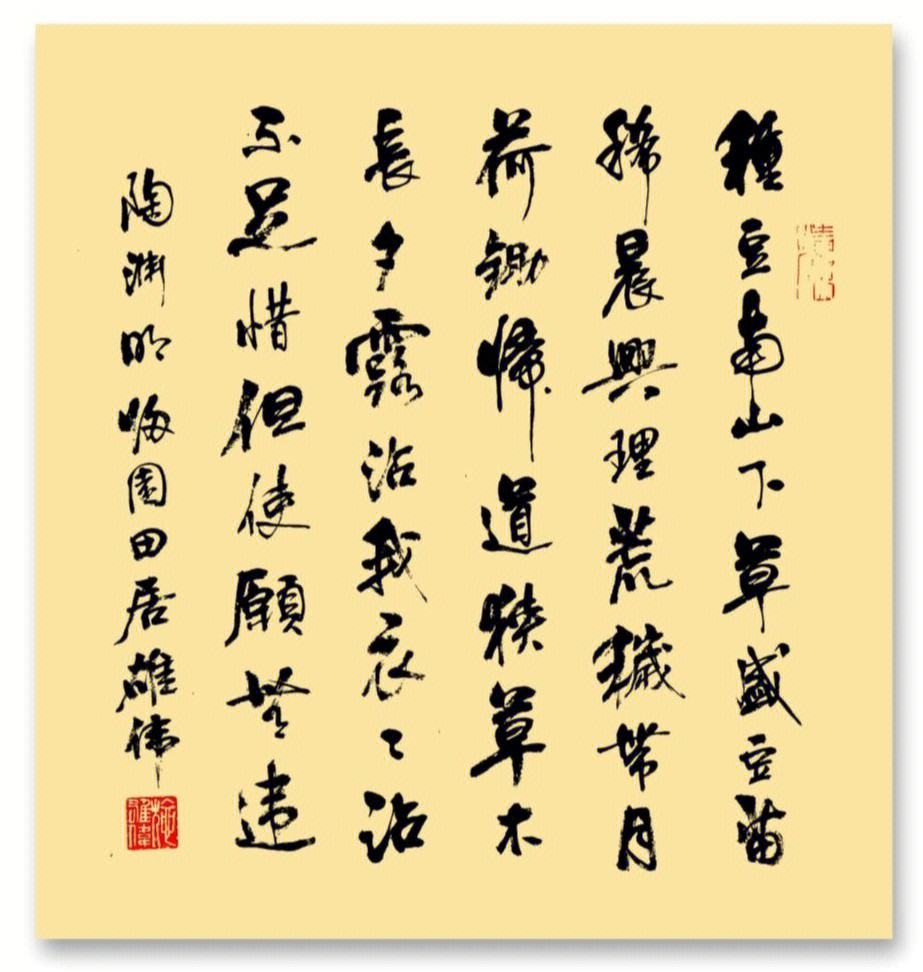 種豆南山下草盛豆苗
稀晨興理荒穢帶月
荷鋤歸道狹草木
長夕露沾我衣〻沾
不足惜但使願無违
陶渊明歸園田居雄伟
雄偉